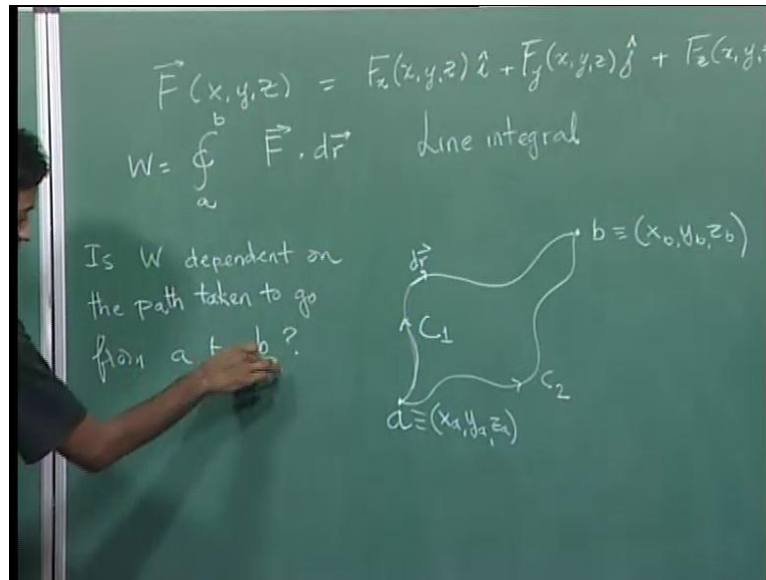 F⃗ (x, y, z) = Fₓ(x,y,z) î + F_y(x,y,z) ĵ + F_z(x,y,
W = ∮ₐᵇ F⃗ . dr⃗ Line integral
Is W dependent on
the path taken to go
from a b ?
dr⃗
b ≡ (x_b, y_b, z_b)
C₁
C₂
a ≡ (xₐ, yₐ, zₐ)